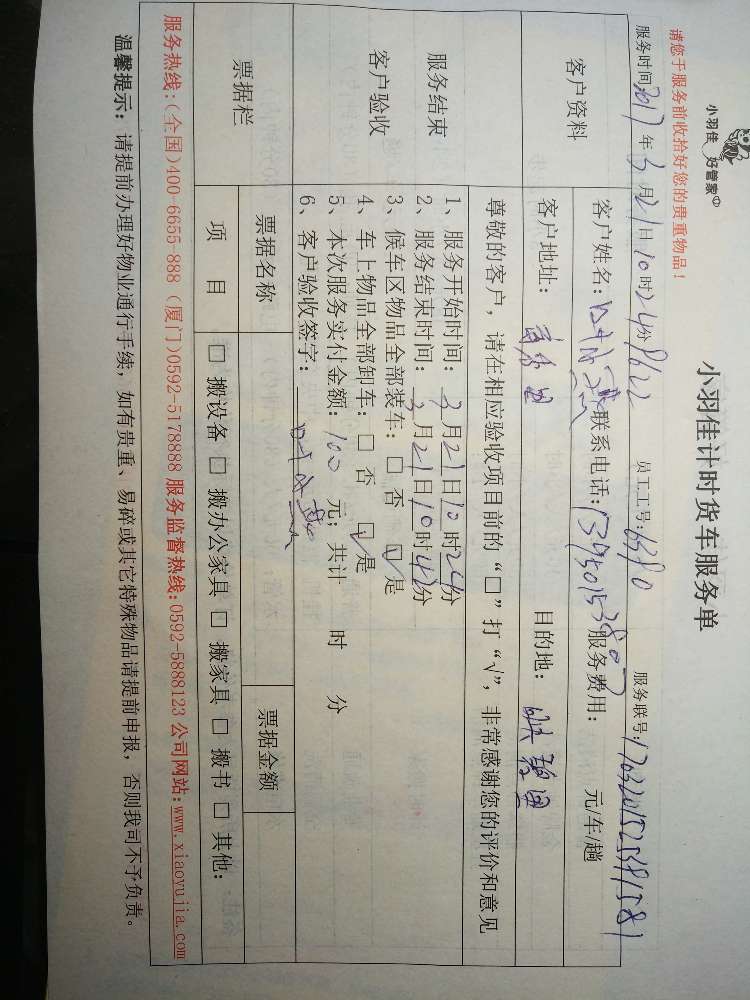 小羽佳 好管家
小羽佳计时货车服务单
请您于服务前收拾好您的贵重物品！
服务时间：2017年3月21日10时24分 员工工号： 服务联号：
客户资料
客户姓名： 联系电话： 服务费用： 元/车/趟
客户地址： 目的地：
尊敬的客户，请在相应验收项目前的“□”打“√”，非常感谢您的评价和意见
服务结束
客户验收
1、服务开始时间：3月21日10时24分
2、服务结束时间：3月21日10时42分
3、候车区物品全部装车：□ 否 ☑ 是
4、车上物品全部卸车：□ 否 ☑ 是
5、本次服务实付金额：100 元；共计 时 分
6、客户验收签字：
票据栏
票据名称 票据金额
项 目 □ 搬设备 □ 搬办公家具 □ 搬家具 □ 搬书 □ 其他：
服务热线：(全国)400-6655-888 (厦门)0592-5178888 服务监督热线：0592-5888123 公司网站：www.xiaoyujia.com
温馨提示：请提前办理好物业通行手续，如有贵重、易碎或其它特殊物品请提前申报，否则我司不予负责。